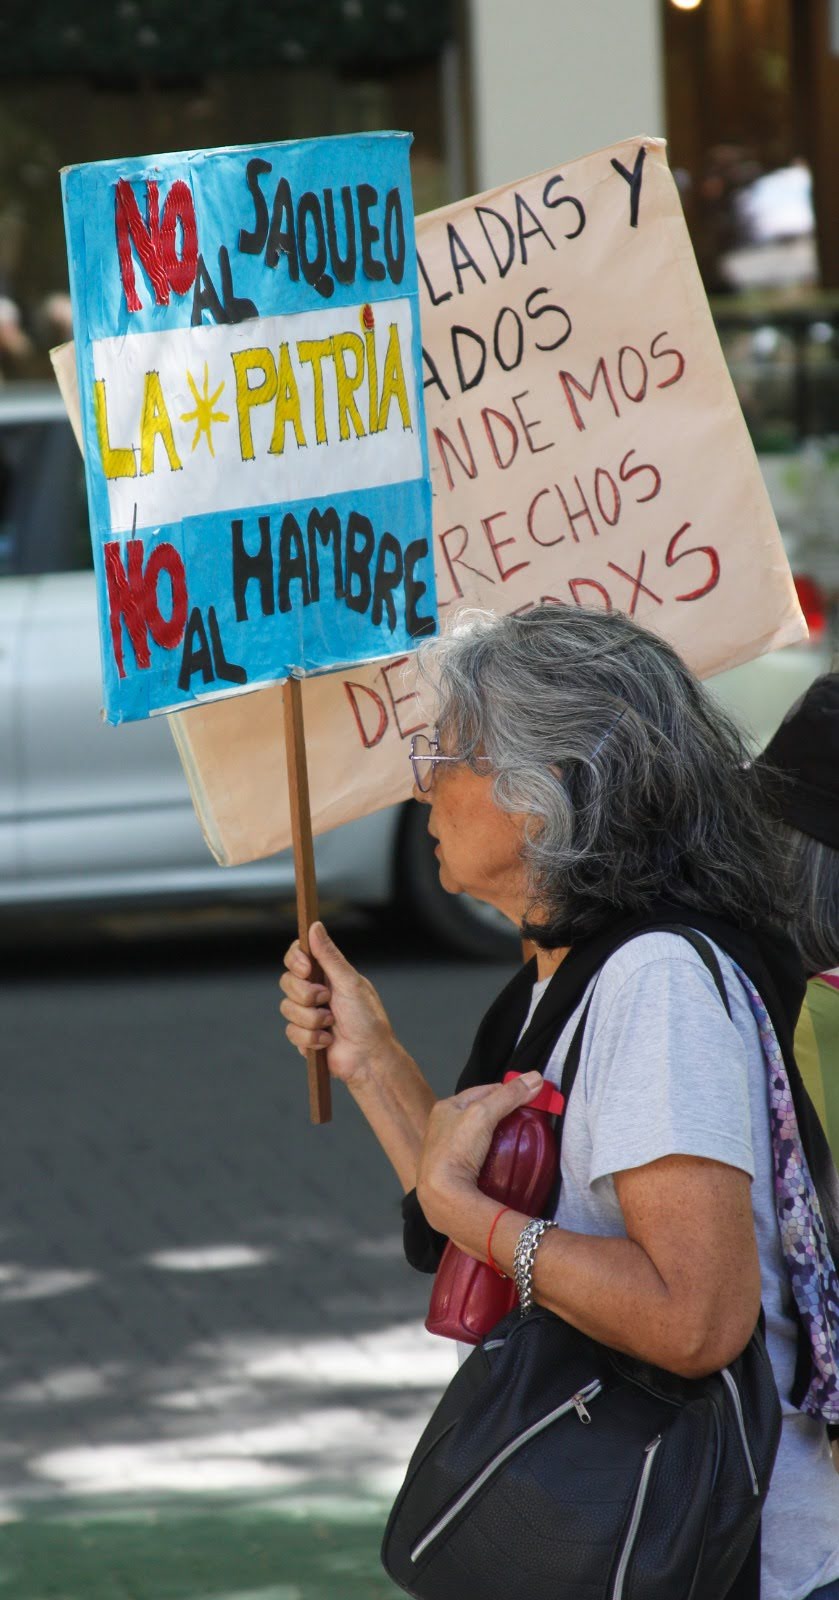 NO AL SAQUEO
LA * PATRIA
NO AL HAMBRE
LADAS Y
ADOS
NDEMOS
RECHOS
DE